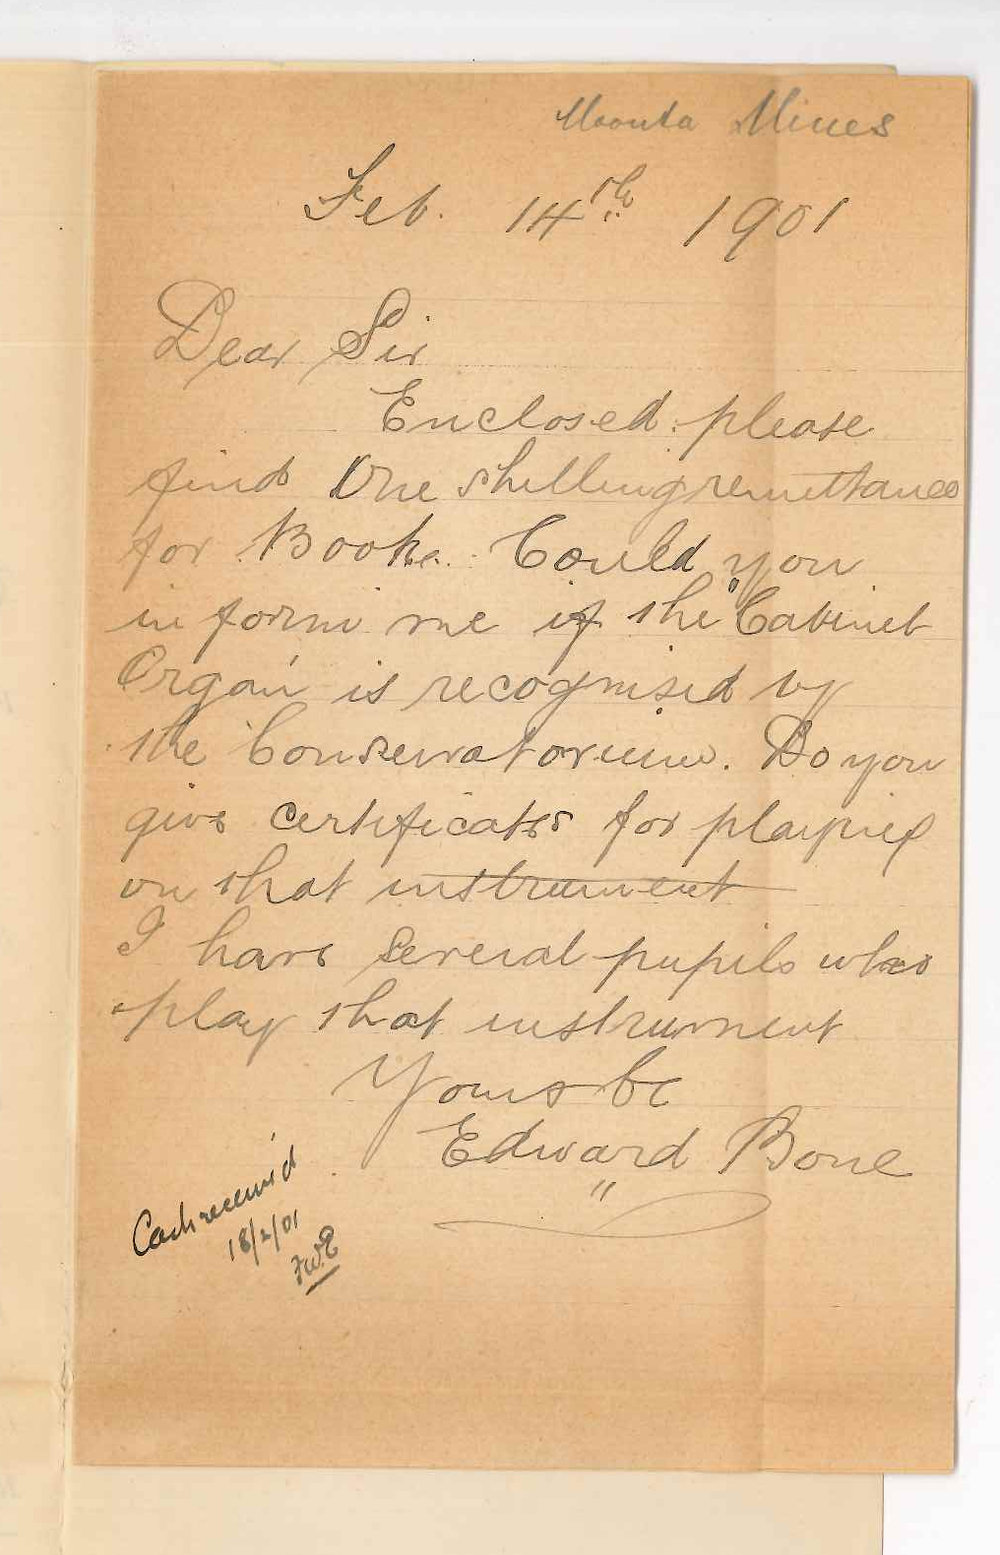 Moonta Mines
Feb. 14th 1901
Dear Sir
Enclosed please
find One shilling remittance
for Book. Could you
inform me if the "Cabinet
Organ" is recognised by
the Conservatorium. Do you
give certificates for playing
on that instrument
I have several pupils who
play that instrument
Yours &c
Edward Bone
Cash receiv'd
18/2/01
FWE